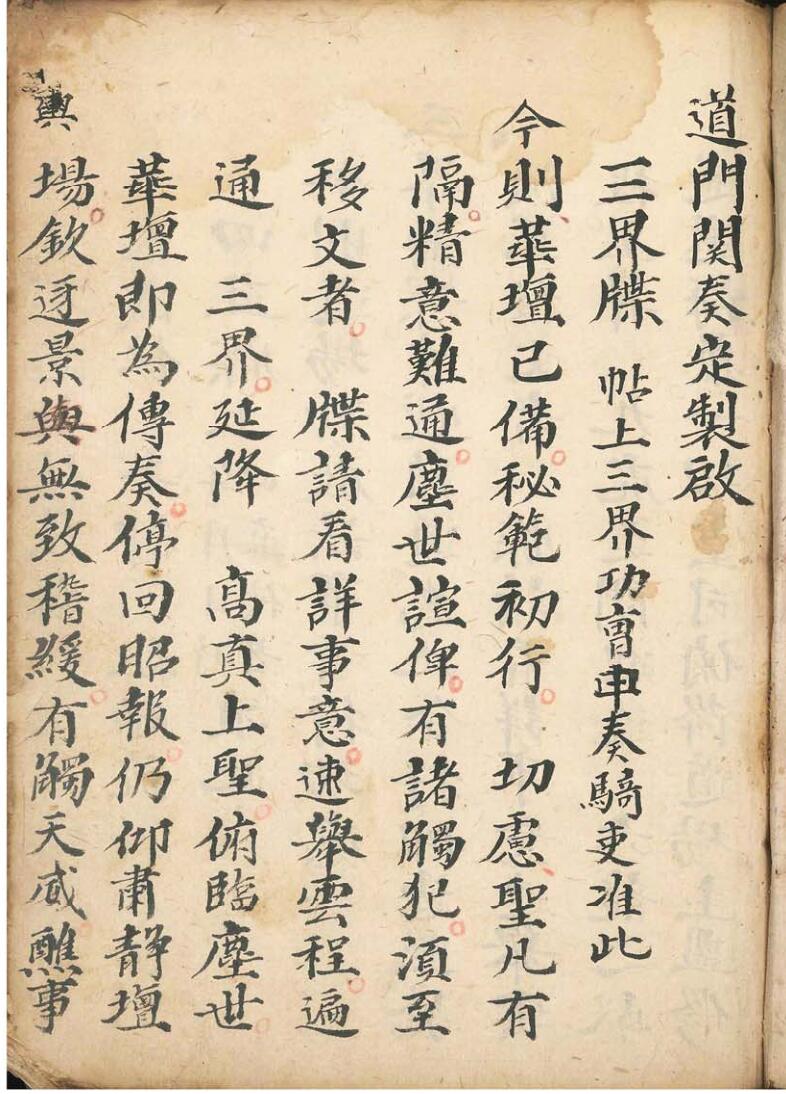 道門関奏定製啟
三界牒 帖上三界功曺申奏騎吏准此
今則華壇已備秘範初行 切慮聖凡有
隔精意難通塵世諠俾有諸觸犯湏至
移文者 牒請看詳事意速舉雲程遍
通 三界延降 高真上聖俯臨塵世
華壇即為傳奏停回昭報仍仰肅静壇
場欽迓景輿無致稽緩有觸天威醮事
輿